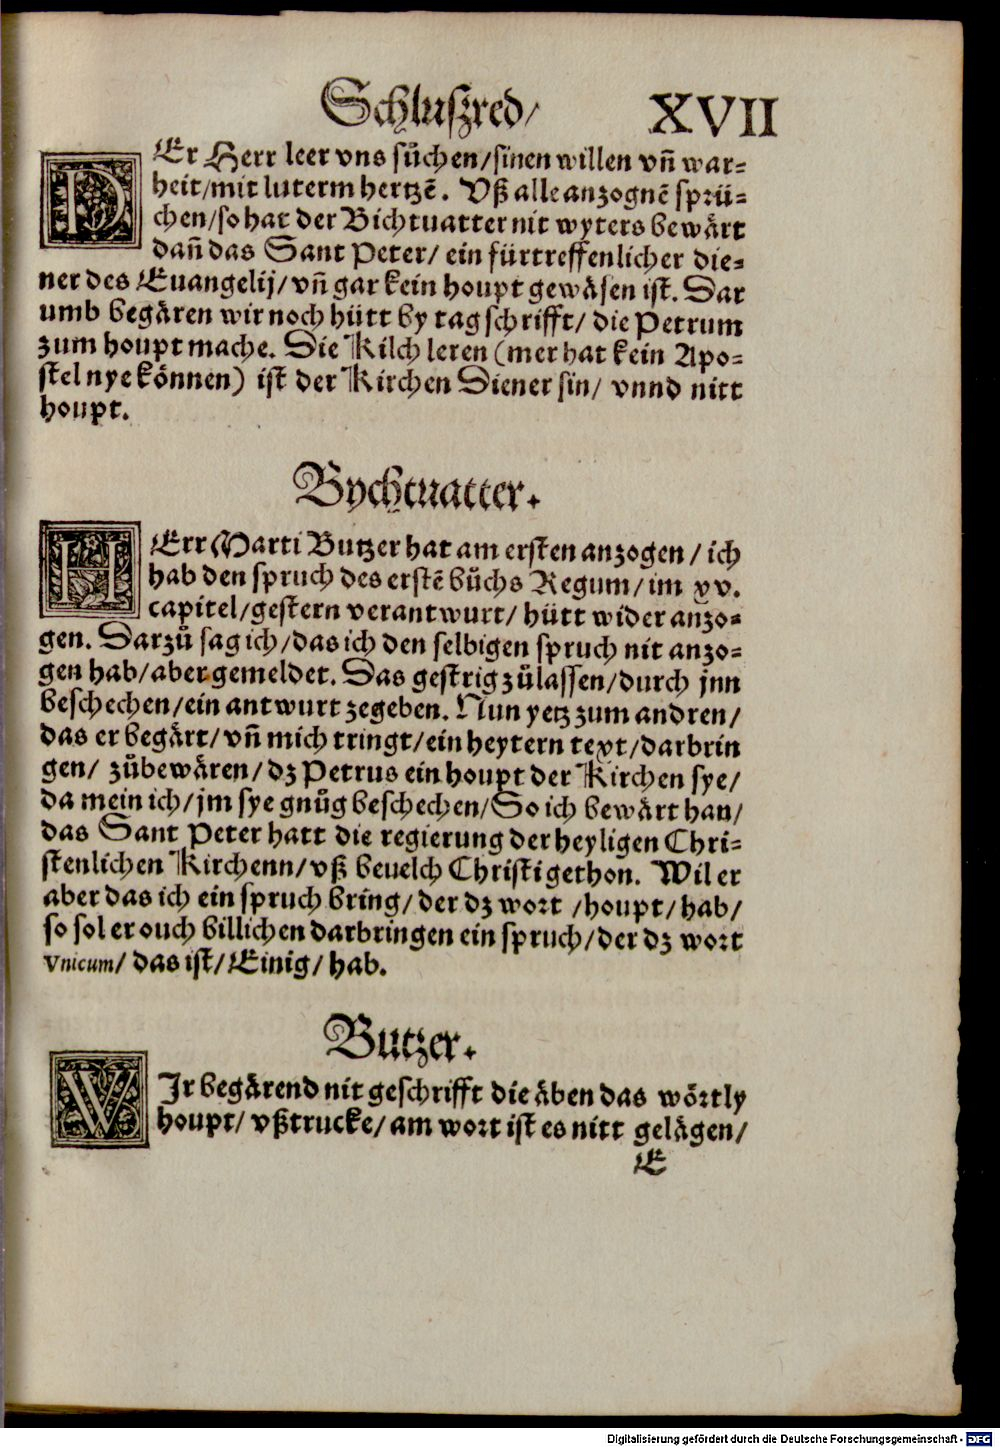 Schluszred/ XVII
DEr Herr leer vns sůchen/sinen willen vñ war-
heit/mit luterm hertzē. Vß alle anzognē sprü-
chen/so hat der Bichtuatter nit wyters bewärt
dañ das Sant Peter/ ein fürtreffenlicher die-
ner des Euangelij/vñ gar kein houpt gewäsen ist. Dar
umb begären wir noch hütt by tag schrifft/ die Petrum
zum houpt mache. Die Kilch leren (mer hat kein Apo-
stel nye können) ist der Kirchen Diener sin/ vnnd nitt
houpt.
Bychtuatter.
HErr Marti Butzer hat am ersten anzogen/ ich
hab den spruch des erstē bůchs Regum/im xv.
capitel/gestern verantwurt/ hütt wider anzo-
gen. Darzů sag ich/das ich den selbigen spruch nit anzo-
gen hab/aber gemeldet. Das gestrig zůlassen/durch jnn
beschechen/ein antwurt zegeben. Nun yetz zum andren/
das er begärt/vñ mich tringt/ein heytern text/darbrin
gen/ zůbewären/dz Petrus ein houpt der Kirchen sye/
da mein ich/jm sye gnůg beschechen/So ich bewärt han/
das Sant Peter hatt die regierung der heyligen Chri-
stenlichen Kirchenn/vß beuelch Christi gethon. Wil er
aber das ich ein spruch bring/der dz wort /houpt/hab/
so sol er ouch billichen darbringen ein spruch/der dz wort
Vnicum/ das ist/Einig/hab.
Butzer.
WIr begärend nit geschrifft die äben das wörtly
houpt/vßtrucke/am wort ist es nitt gelägen/
E
Digitalisierung gefördert durch die Deutsche Forschungsgemeinschaft - DFG